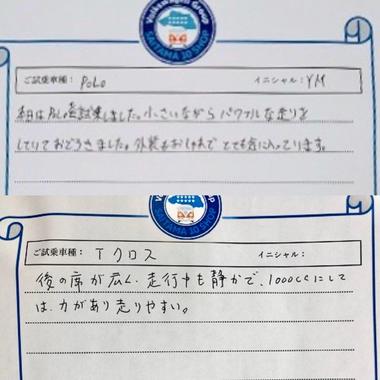 Volkswagen Group
SAITAMA 10 SHOP
ご試乗車種: PoLo イニシャル: YM
本日はPoLoを試乗しました。小さいながらパワフルな走りを
していておどろきました。外装もおしゃれでとても気に入っています。
SAITAMA 10 SHOP
ご試乗車種: Tクロス イニシャル:
後の席が広く、走行中も静かで、1000ccにして
は、力があり走りやすい。